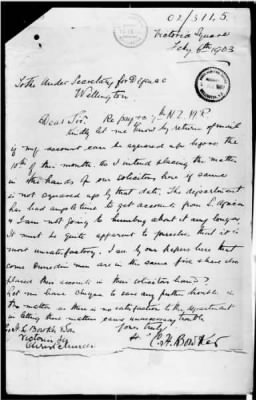 02/311.5
Victoria Square
July 6th 1903
To the Under Secretary for Defence
Wellington.
Dear Sir: Re pay 7th N.Z.M.R
Kindly let me know by return of mail
if my account can be squared up before the
10th of this month. As I intend placing the matter
in the hands of our solicitors here if same
is not squared up by that date. The department
has had ample time to get accounts from S. Africa
& I am not going to humbug about it any longer.
It must be quite apparent to yourselves that it is
most unsatisfactory. I see by our papers here that
some Dunedin men are in the same fix & have also
placed their accounts in their solicitors hands?
Let me hear by return to save any further trouble in
the matter as there is no satisfaction to the department
in letting these matters cause unnecessary trouble
Yours truly
C. H. Bowker
Victoria Sq
Christchurch